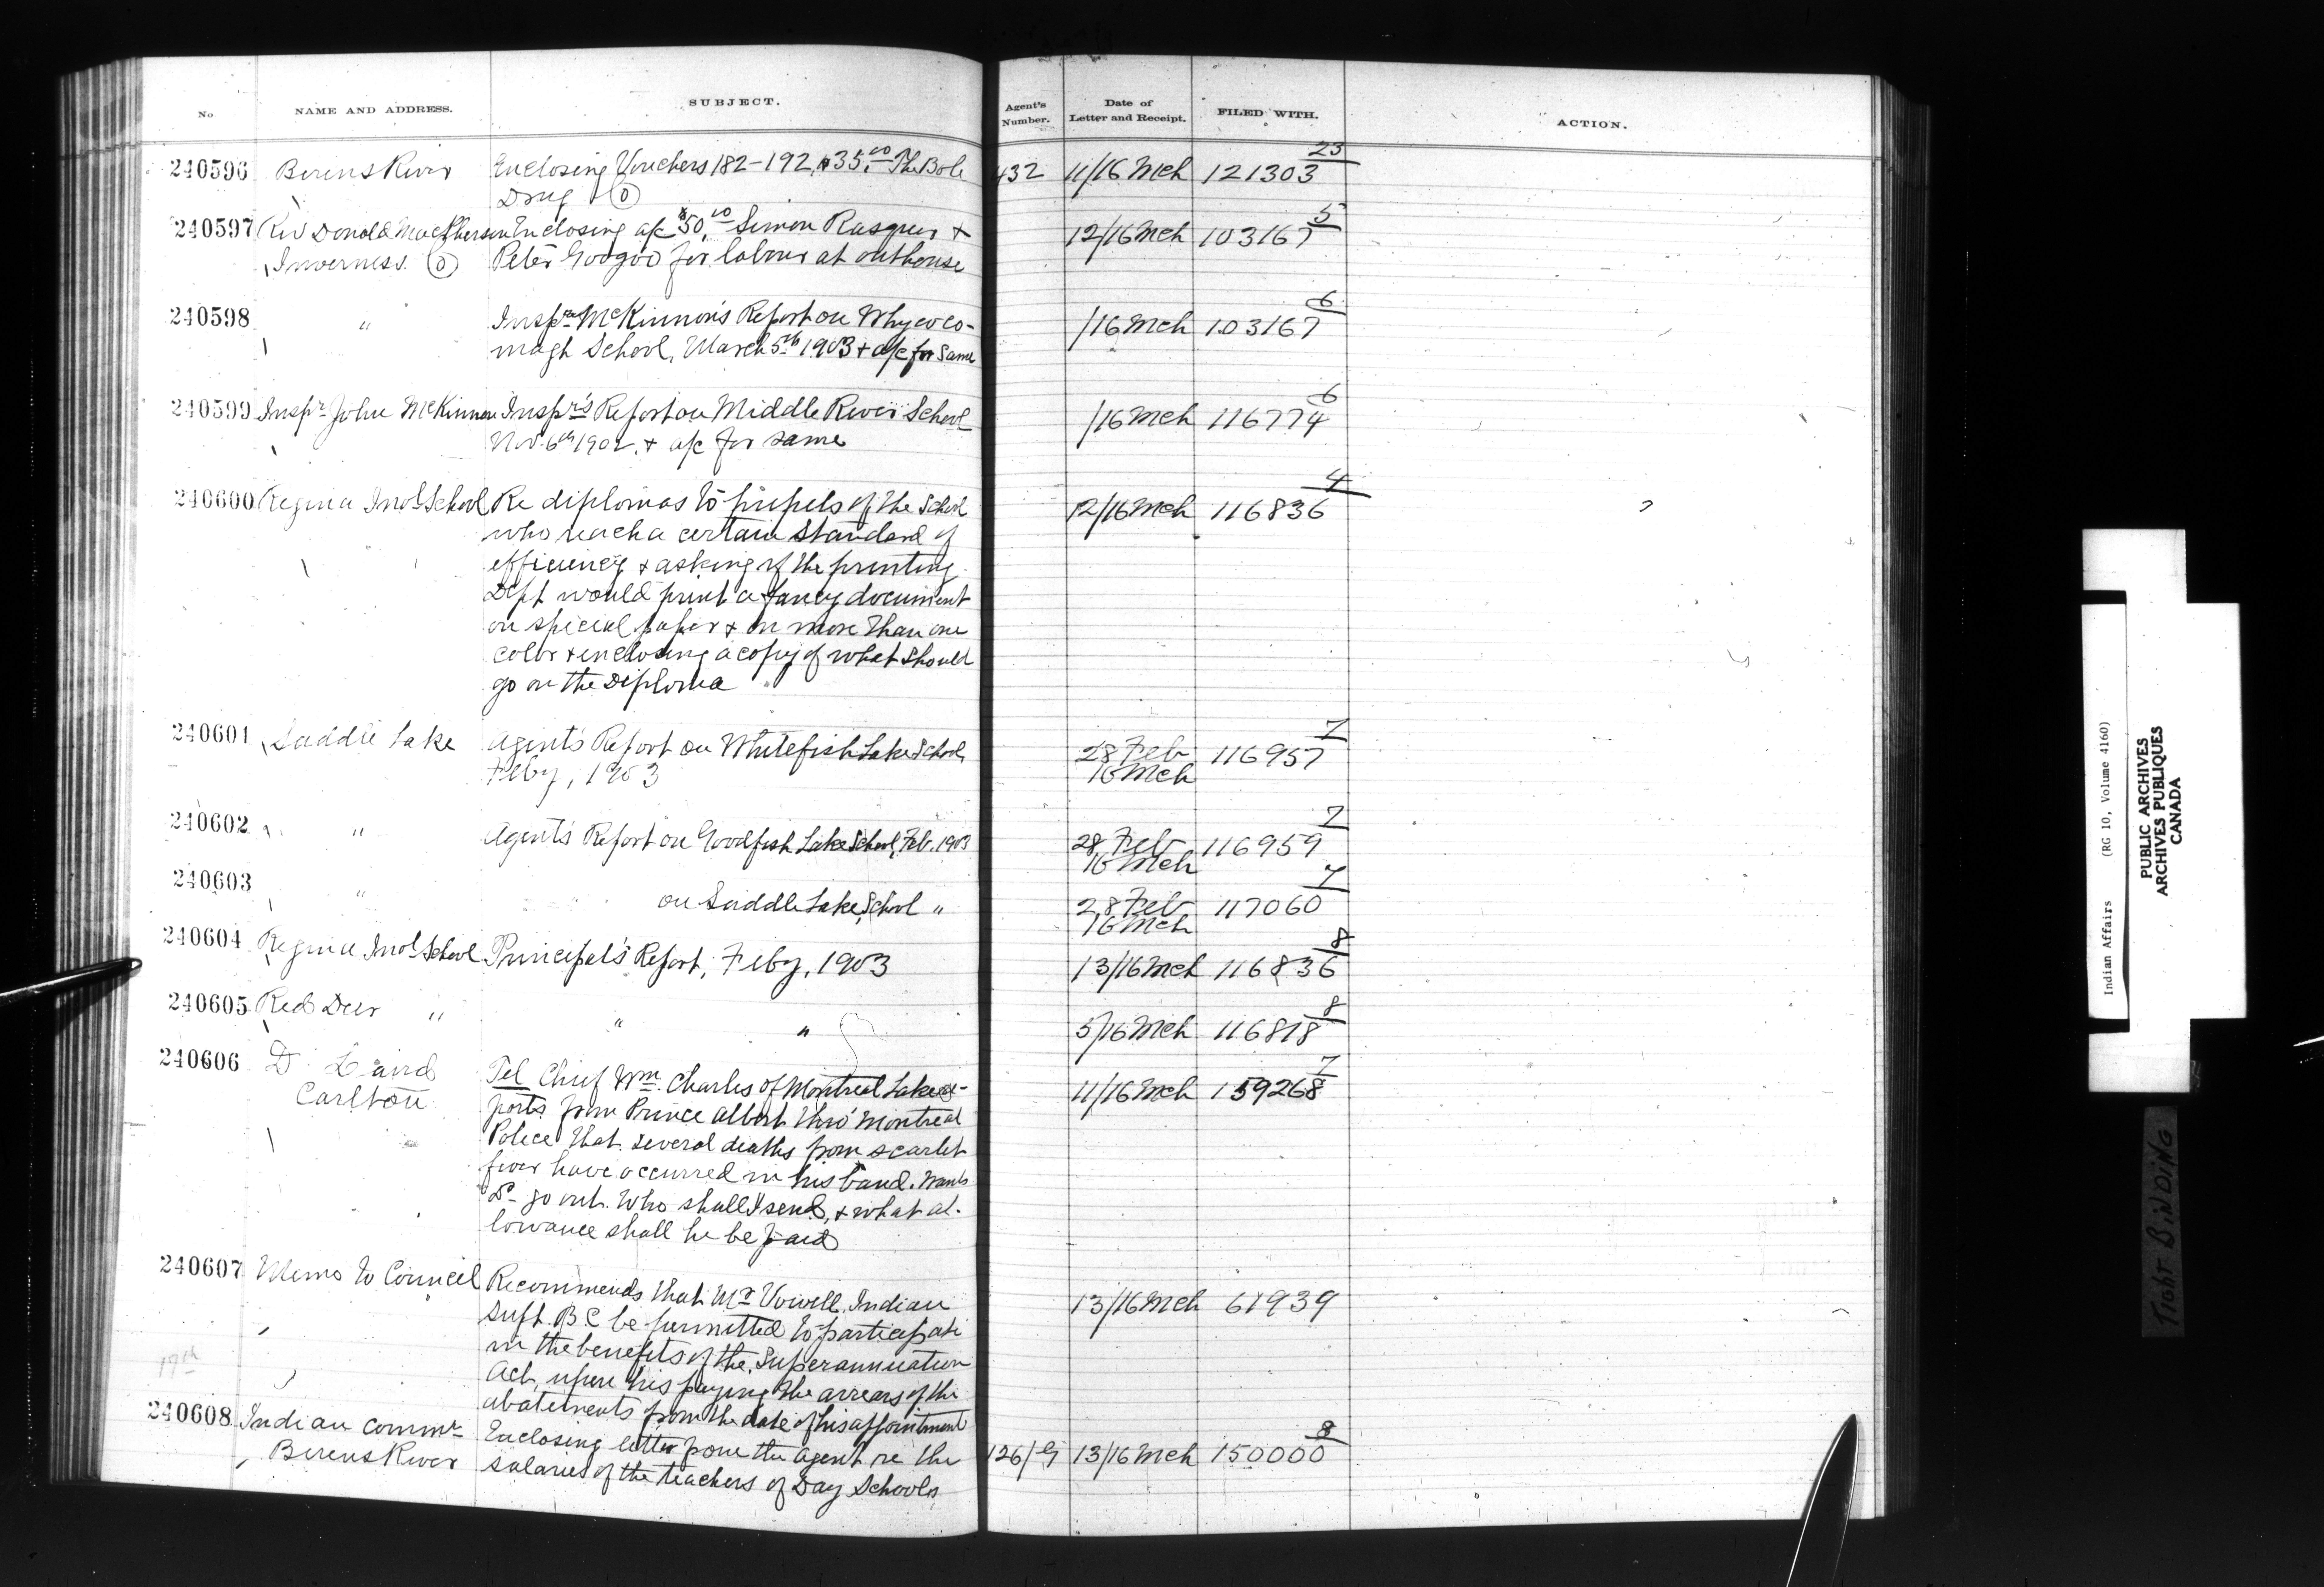 No NAME AND ADDRESS. SUBJECT. Agent's Number. Date of Letter and Receipt. FILED WITH. ACTION.
240596 Berens River Enclosing Vouchers 182-192, $35.00 The Bole 432 11/16 Mch 121303 23
Drug (0)
240597 Rev Donald MacPherson Enclosing a/c $50.00 Simon & 12/16 Mch 103167 5
Inverness (0) Peter Googoo for labour at outhouse
240598 " Inspr McKinnon's Report on Whycoco- /16 Mch 103167 6
magh School, March 5th 1903 & a/c for same
240599 Inspr John McKinnon Inspr's Report on Middle River School /16 Mch 116774 6
Nov. 6th 1902. & a/c for same
240600 Regina Indl School Re diplomas to pupels of the School 12/16 Mch 116836 4
who reach a certain standard of
efficiency & asking if the printing
Dept would print a fancy document
on special paper & in more than one
color & enclosing a copy of what should
go on the Diploma
240601 Saddle Lake Agent's Report on Whitefish Lake School, 28 Feb 116957 7
Feby, 1903 16 Mch
240602 " Agent's Report on Goodfish Lake School, Feb. 1903 28 Feb 116959 7
16 Mch
240603 " on Saddle Lake School " 28 Feb 117060 7
16 Mch
240604 Regina Indl School Principal's Report, Feby, 1903 13/16 Mch 116836 8
240605 Red Deer " " " 5/16 Mch 116818 8
240606 D. Laird Tel Chief Wm. Charles of Montreal Lake re- 11/16 Mch 159268 7
Carlton ports from Prince Albert thro' Montreal
Police that several deaths from scarlet
fever have occurred in his band. Wants
Dr go out. Who shall I send, & what al-
lowance shall he be paid
240607 Memo to Council Recommends that Mr Vowell, Indian 13/16 Mch 61939
Supt. B C be permitted to participate
in the benefits of the Superannuation
17th
Act, upon his paying the arrears of the
abatements from the date of his appointment
240608 Indian Commr Enclosing letter from the Agent re the 126/ 13/16 Mch 150000 8
Berens River salaries of the teachers of Day Schools
Indian Affairs (RG 10, Volume 4160)
PUBLIC ARCHIVES
ARCHIVES PUBLIQUES
CANADA
TIGHT BINDING